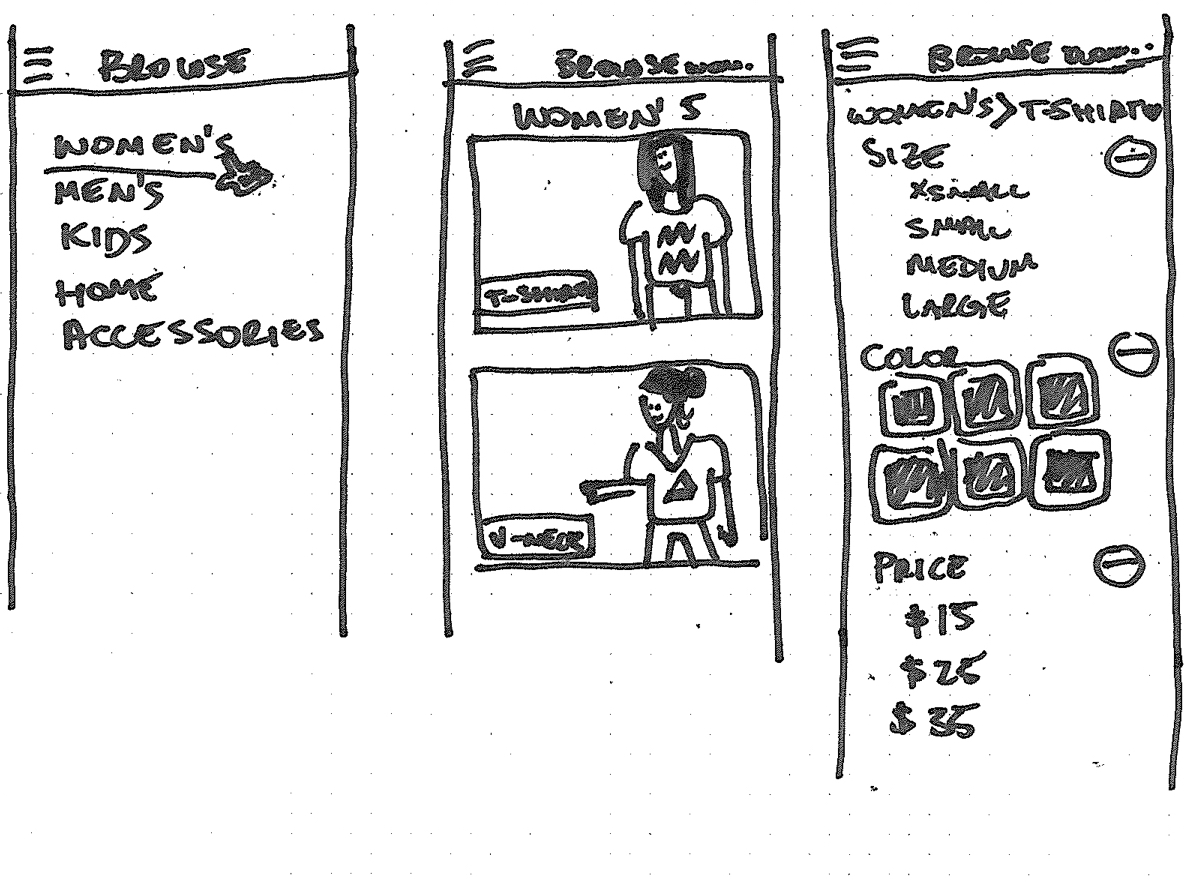 BROWSE
WOMEN'S
MEN'S
KIDS
HOME
ACCESSORIES
BROWSE wom..
WOMEN'S
T-SHIRT
V-NECK
BROWSE
WOMEN'S > T-SHIRT
SIZE
XSMALL
SMALL
MEDIUM
LARGE
COLOR
PRICE
$15
$25
$35